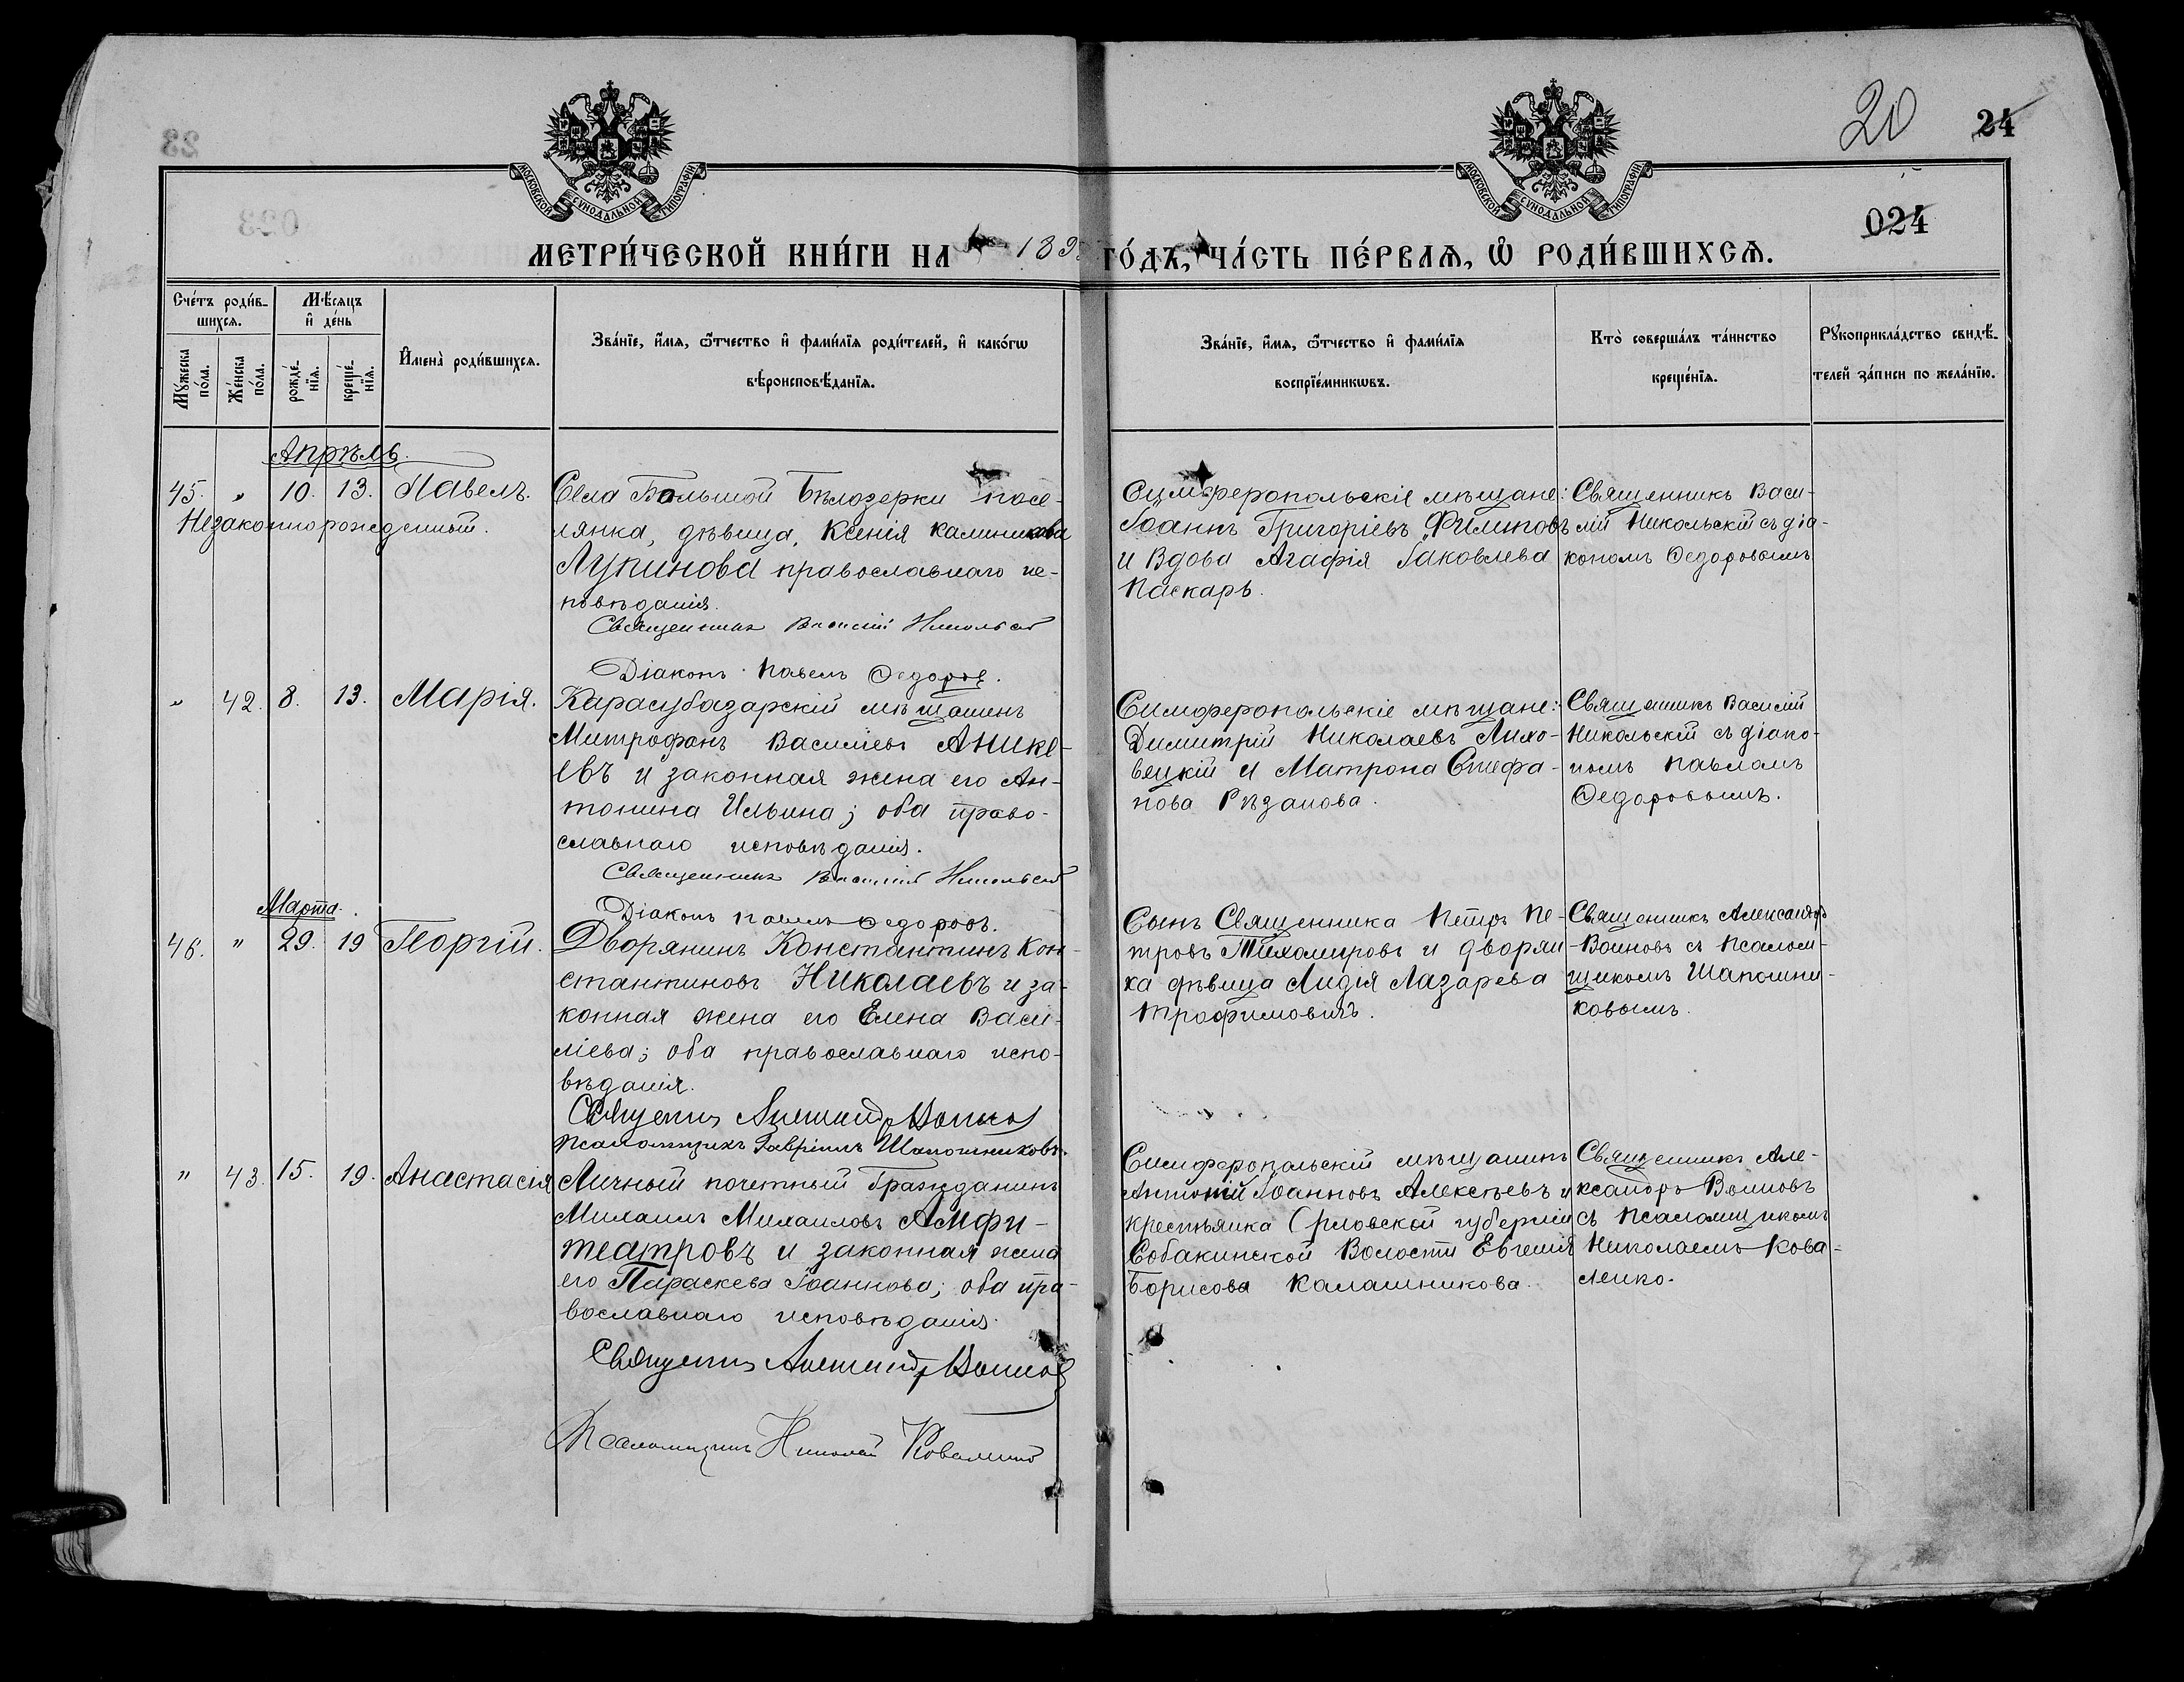 20 24
024
МОСКОВСКОЙ СУНОДАЛЬНОЙ ТИПОГРАФІИ
МОСКОВСКОЙ СУНОДАЛЬНОЙ ТИПОГРАФІИ
МЕТРИ́ЧЕСКОЙ КНИ́ГИ НА 189 ГО́ДЪ, ЧА́СТЬ ПЕ́РВАѦ, Ѽ РОДИ́ВШИХСѦ.
Сче́тъ роди́в-
шихсѧ.
Мꙋжеска по́ла.
Же́нска по́ла.
Мѣ́сѧцъ
и҆ де́нь
рожде́-нїѧ.
креще́-нїѧ.
И҆мена̀ роди́вшихсѧ.
Зва́нїе, и҆́мѧ, ѻ҆́тчество и҆ фами́лїѧ роди́телей, и҆ како́гѡ
вѣроисповѣ́данїѧ.
Зва́нїе, и҆́мѧ, ѻ҆́тчество и҆ фами́лїѧ
воспрїе́мникѡвъ.
Кто̀ соверша́лъ та́инство
креще́нїѧ.
Рꙋкоприкла́дство свидѣ́-
телей за́писи по жела́нїю.
Апрѣль.
45. " 10. 13. Павелъ.
Незаконнорожденный.
Села Большой Бѣлозерки посе-
лянка, дѣвица, Ксенія Калиникова
Лупинова православнаго ис-
повѣданія.
Священникъ Василій Никольскій
Діаконъ Павелъ Ѳедоровъ.
Симферопольскіе мѣщане:
Іоаннъ Григоріевъ Филиповъ
и вдова Агафія Іаковлева
Паскаръ.
Священникъ Васи-
лій Никольскій съ діа-
кономъ Ѳедоровымъ
" 42. 8. 13. Марія.
Карасубазарскій мѣщанинъ
Митрофанъ Василіевъ Анике-
евъ и законная жена его Ан-
тонина Ильина; оба право-
славнаго исповѣданія.
Священникъ Василій Никольскій
Діаконъ Павелъ Ѳедоровъ.
Симферопольскіе мѣщане:
Димитрій Николаевъ Лихо-
вецкій и Матрона Стефа-
нова Рѣзанова.
Священникъ Василій
Никольскій съ діако-
номъ Павломъ
Ѳедоровымъ.
Марта.
46. " 29. 19 Георгій.
Дворянинъ Константинъ Кон-
стантиновъ Николаевъ и за-
конная жена его Елена Васи-
ліева; оба православнаго испо-
вѣданія.
Священникъ Александръ Воиновъ
Псаломщикъ Гавріилъ Шапошниковъ.
Сынъ Священника Петръ Пе-
тровъ Тихомировъ и дворян-
ка дѣвица Лидія Лазарева
Трофимовичъ.
Священникъ Александръ
Воиновъ съ Псалом-
щикомъ Шапошни-
ковымъ.
" 43. 15. 19. Анастасія
Личный почетный Гражданинъ
Михаилъ Михаиловъ Амфи-
театровъ и законная жена
его Параскева Іоаннова; оба пра-
вославнаго исповѣданія.
Священникъ Александръ Воиновъ
Псаломщикъ Николай Коваленко
Симферопольскій мѣщанинъ
Антоній Іоанновъ Алексѣевъ и
крестьянка Орловской губерніи
Собакинской Волости Евгенія
Борисова Калашникова.
Священникъ Але-
ксандръ Воиновъ
съ Псаломщикомъ
Николаемъ Кова-
ленко.